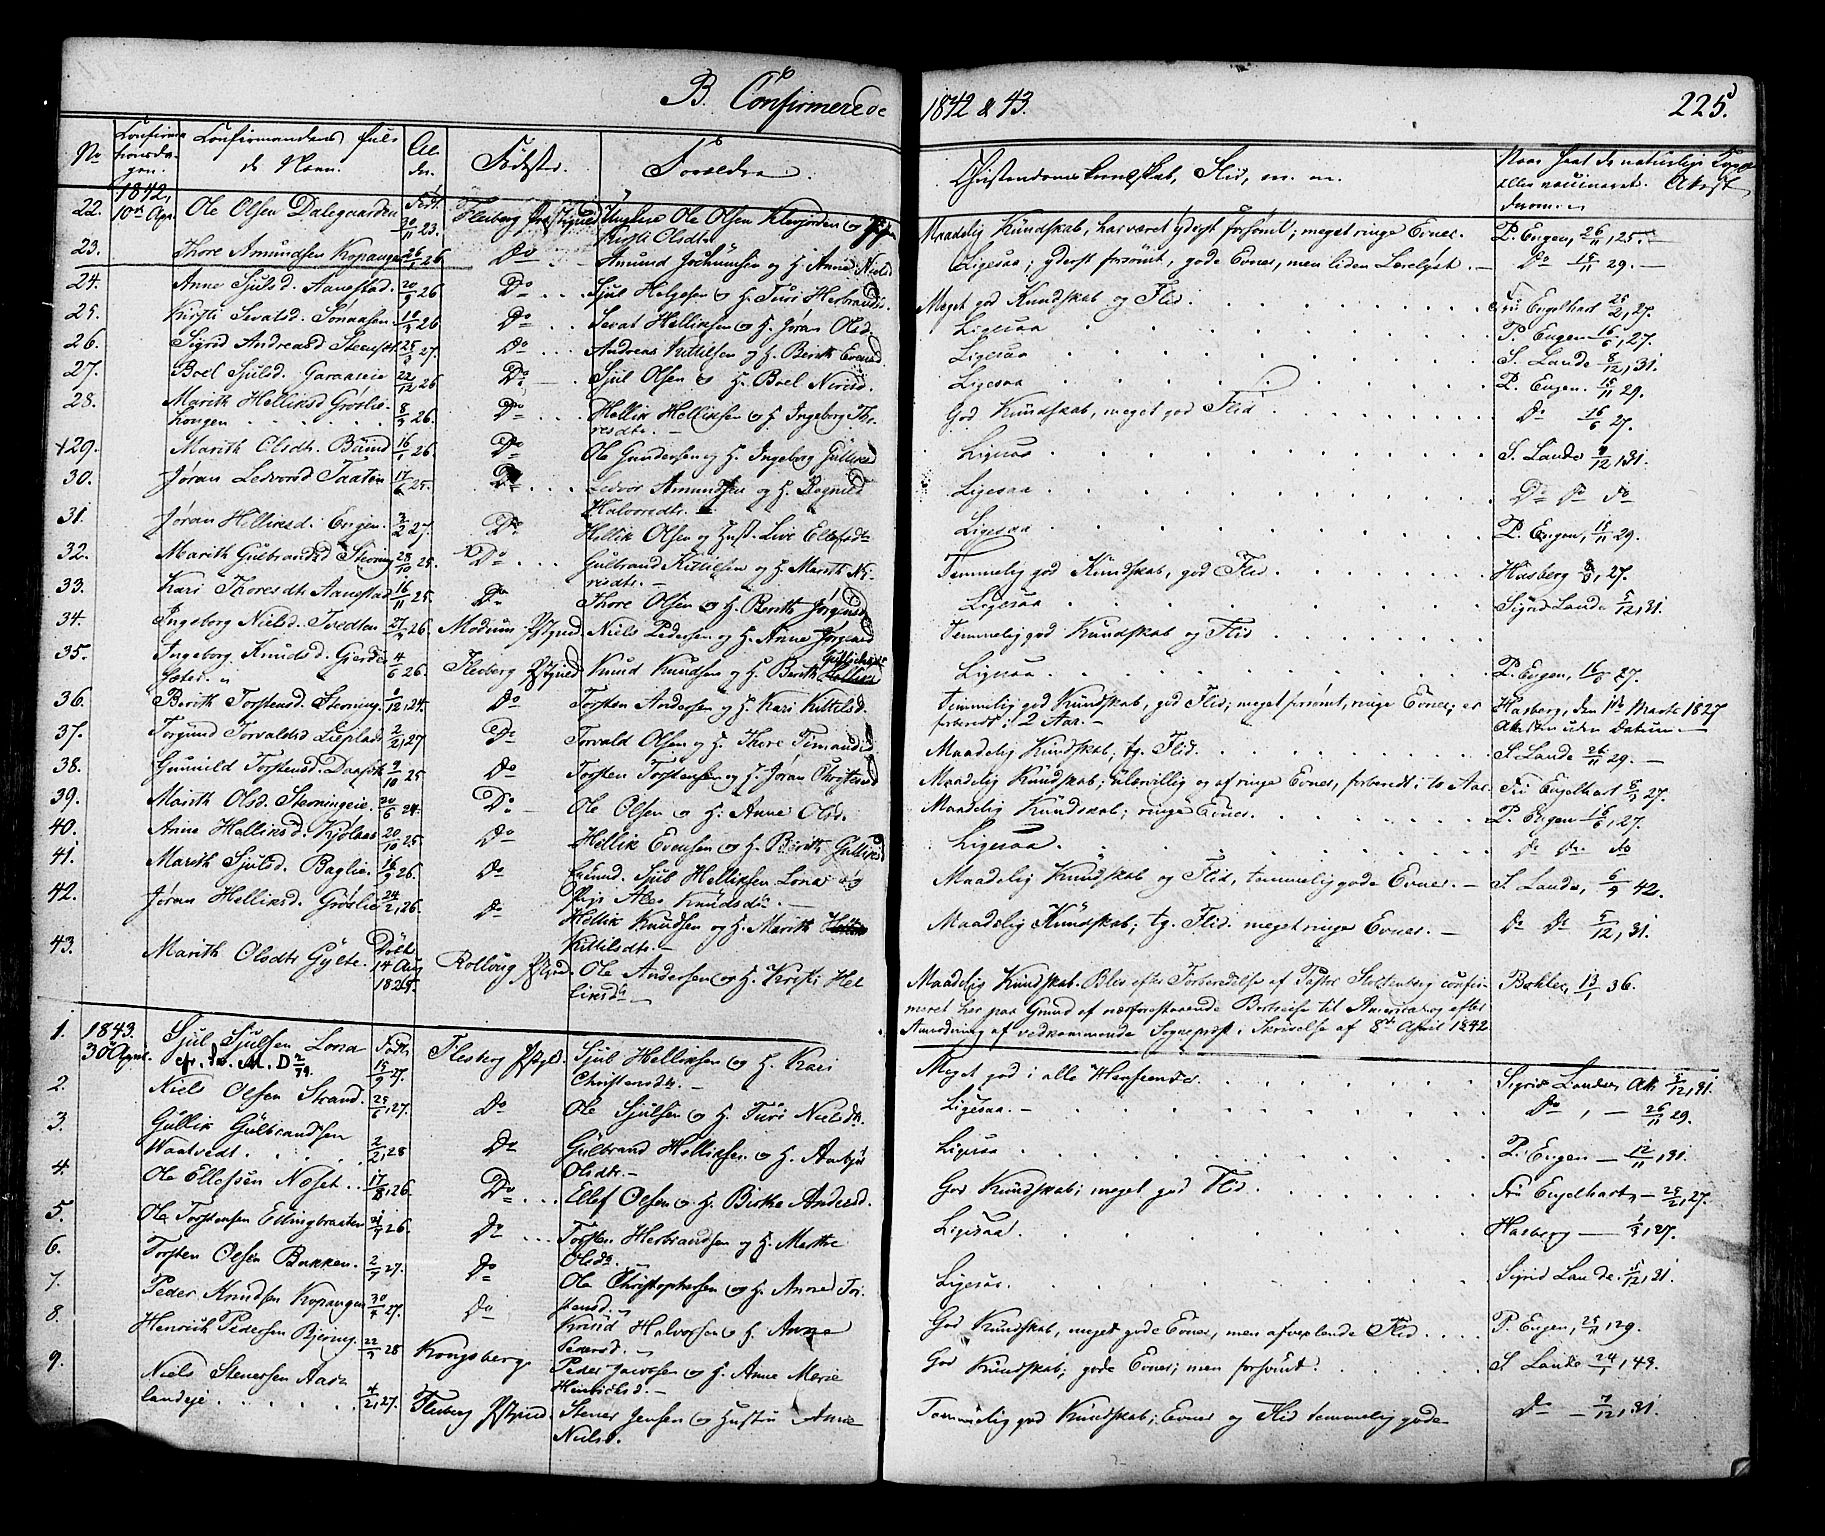 B. Confirmerede 1842 & 43. 225.
No Confirmationsdagen. Confirmandens fulde Navn. Alder. Fødested. Forældre. Christendomskundskab, Flid, m. m. Naar havt de naturlige Kopper eller vaccineret.
1842,
22. 10de Apr. Ole Olsen Dalegaarden Født 30/11 23. Flesberg Præstgjeld Ungkarl Ole Olsen Klevjorden og Pigen
Kirsti Olsdtr. Maadelig Kundskab, har været yderst forsømt; meget ringe Evner. P. Engen, 26/11, 25.
23. Thore Amundsen Kopangen 26/1 26 Do Amund Jochumsen og H. Anne Nielsd Ligesaa; yderst forsømt, gode Evner, men liden Lærelyst. Do 15/11 29.
24. Anne Sjulsd. Aanestad. 20/9 26 Do Sjul Helgesen og H. Turi Herbrandsd. Meget god Kundskab og Flid. Fru Engelhart 25/2, 27.
25. Kirsti Sevatsd. 10/3 26 Do Sevat Helliksen og H. Jøran Olsd. Ligesaa P. Engen 16/6, 27.
26. Sigrid Andreasd 25/3 27. Do Andreas Kittilsen og H. Berith Evensd Ligesaa S. Lande 8/12, 31.
27. Boel Sjulsd. Garaaseie 22/12 26 Do Sjul Olsen og H. Boel Nirisd. Ligesaa P. Engen. 15/11 29.
28. Marith Helliksd Grøslie-
kongen 8/3 26. Do Hellik Helliksen og H. Ingeborg Tho-
resdtr. God Kundskab, meget god Flid. Do 16/6 27.
+29. Marith Olsdtr. 16/1 26. Do Ole Gundersen og H. Ingeborg Gulliksd Ligesaa S. Lande 9/12, 31.
30. Jøran Ledvord Taaten 17/6 25. Do Ledvor Amundsen og H. Ragnild
Halvorsdtr. Ligesaa Do Do Do
31. Jøran Helliksd. Engen. 3/2 27. Do Hellik Olsen og Hust. Live Ellefsdtr Ligesaa P. Engen, 15/11 29.
32. Marith Gulbrandsd Sterning 28/10 25. Do Gulbrand Kittilsen og H. Marith Ni-
risdtr. Temmelig god Kundskab, god Flid. Hasberg 8/3, 27.
33. Kari Thoresdtr Aanestad 16/11 25. Do Thore Olsen og H. Berith Jørgensd Ligesaa Sigrid Lande 5/12, 31.
34. Ingeborg Nielsd. Tvedten 27/3 26. Modum Pstgjeld Niels Pedersen og H. Anne Jørgensd Temmelig god Kundskab og Flid
35. Ingeborg Knudsd. Gjerde
4/6 26. Flesberg Pstgjeld Knud Knudsen og H. Berith Ligesaa P. Engen, 16/6, 27.
36. Berith Torstensd. Sterning. 1/12, 24. Do Torsten Andersen og H. Kari Kittilsd. Temmelig god Kundskab, god Flid; meget forsømt, ringe Evner; er
forberedt i 2 Aar. Hasberg, den 1ste Marts 1827
Attesten uden Datum
37. Torgund Torvaldsd 2/2, 27 Do Torvald Olsen og H. Thore Maadelig Kundskab; tg. Flid. S. Lande 26/11 29.
38. Gunnild Torstensd. 9/10 25 Do Torsten Torstensen og H. Jøran Christensd Maadelig Kundskab; og af ringe Evner, forberedt i to Aar. Fru Engelhart 8/3, 27.
39. Marith Olsd. Sterningeie. 20/6 24. Do Ole Olsen og H. Anne Olsd. Maadelig Kundskab; ringe Evner. P. Engen 16/6, 27.
40. Anne Helliksd. 20/10 25. Do Hellik Evensen og H. Berith Gulliksd Ligesaa. Do Do Do
41. Marith Sjulsd. Baglie. 16/9 26. Do Sjul Helliksen Lona og
Pige Knudsd. Maadelig Kundskab og Flid, temmelig gode Evner. S. Lande, 6/9 42.
42. Jøran Helliksd. Grøslie 24/2, 26. Do Hellik Knudsen og H. Marith
Kittilsdtr. Maadelig Kundskab; tg. Flid. meget ringe Evner. Do Do 5/12, 31.
43. Marith Olsdtr Gylte. Døbt
14 Aug
Rollaug Pstgjeld. Ole Andersen og H. Kirsti Hel-
liksdtr Maadelig Kundskab. Blev efter Forberedelse af Pastor Stoltenberg confir-
meret her paa Grund af nærforestaaende Bortreise til America og efter
Anmodning af vedkommende Sognepræst i Skrivelse af 8de April 1842 13/1 36.
1. 1843.
30 April. Sjul Sjulsen Lona
Født 15/9 27. Flesberg Pstgjd. Sjul Helliksen og H. Kari
Christensdtr. Meget god i alle Henseender. Sigrid Lande, At. 5/12, 31.
2. Niels Olsen Strand. 25/6, 27. Do Ole Sjulsen og H. Turi Nielsdtr. Ligesaa. Do 26/11 29.
3. Gullik Gulbrandsen
Waatvedt. 2/2, 28 Do Gulbrand Helliksen og H.
Olsdtr. Ligesaa P. Engen 12/11, 31.
4. Ole Ellefsen Næset 17/8, 26. Do Ellef Olsen og H. Birthe Andersd. God Kundskab; meget god Flid. Fru Engelhart 25/2, 27.
5. Ole Torstensen Ellingbraaten 21/7 26. Do Torsten Herbrandsen og H. Marthe
Olsd. Ligesaa. Hasberg 1/3, 27.
6. Torsten Olsen Bakken. 2/7 27. Do Ole Christophersen og H. Anne Tor-
stensd. Ligesaa. Sigrid Lande. 5/12, 31.
7. Peder Knudsen Kopangen 30/4 27. Do Knud Halvorsen og H. Anne
Pedersd. God Kundskab, meget gode Evner, men afvexlende Flid. P. Engen, 25/11, 29.
8. Henrich Pedersen Bjering. 22/3 28 Kongsberg Peder og H. Anne Marie
Henrichsd. God Kundskab; gode Evner; men forsømt. S. Lande 24/1, 43.
9. Niels Stenersen Aas-
landeje. 4/2, 27. Flesberg Pstgjed. Stener Jensen og Hustru Anne
Nielsd. Temmelig god Kundskab; Evner og Flid temmelig gode Do 7/12, 31.